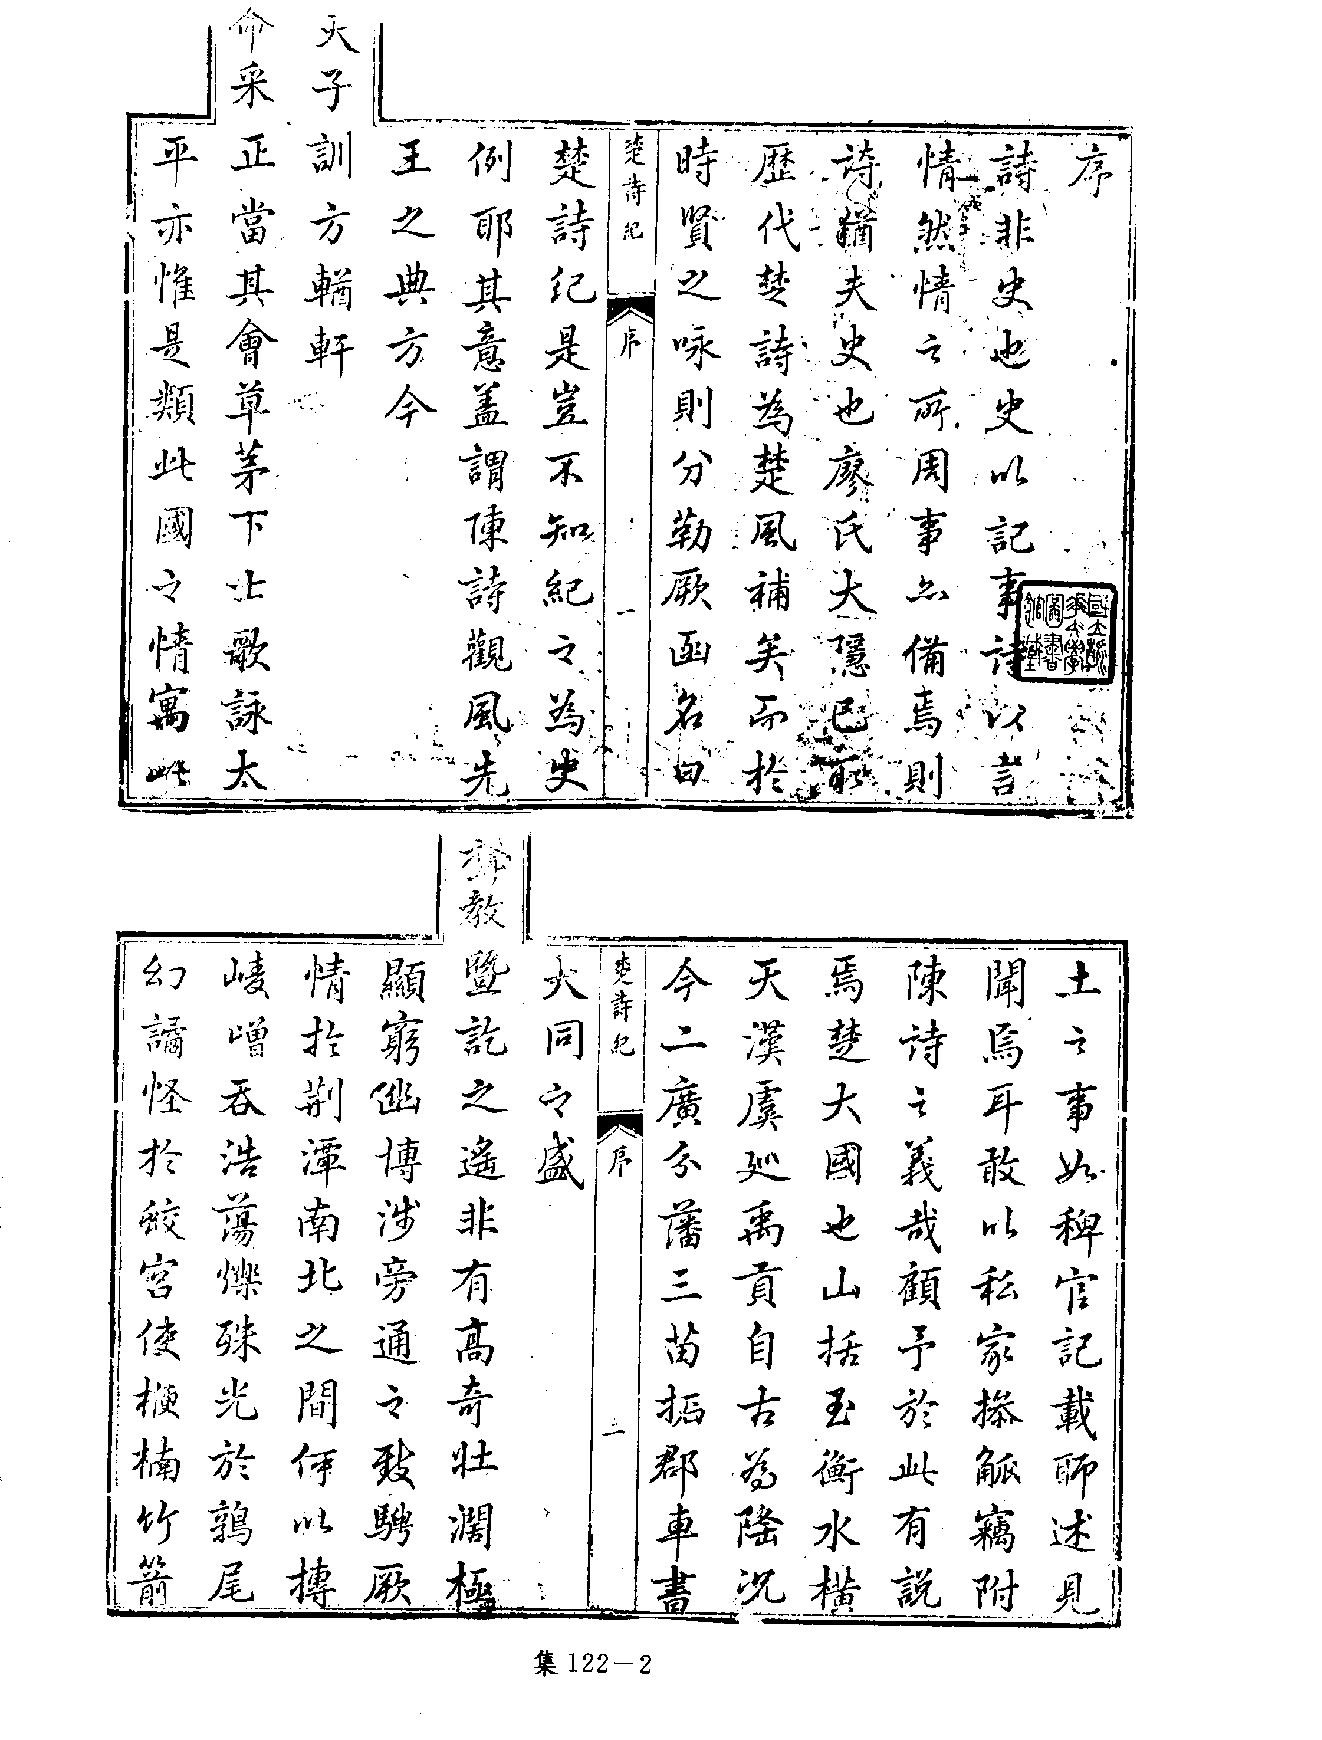 序
詩非史也史以記事詩以言
情然情之所周事亦備焉則
詩猶夫史也廖氏大隱已取
歷代楚詩為楚風補矣而於
時賢之咏則分勒厥函名曰
楚詩紀
序
一
楚詩紀是豈不知紀之為史
例耶其意蓋謂陳詩觀風先
王之典方今
天子訓方輶軒
命采正當其會草茅下士歌詠太
平亦惟是類此國之情寓此
土之事如稗官記載師述見
聞焉耳敢以私家搽觚竊附
陳詩之義哉顧予於此有說
焉楚大國也山括玉衡水橫
天漢虞巡禹貢自古為隆況
今二廣分藩三苗拓郡車書
楚詩紀
序
二
大同之盛
聲教暨訖之遙非有高奇壯濶極
顯窮幽博涉旁通之致騁厥
情於荆潭南北之間何以摶
崚嶒吞浩蕩爍殊光於鶉尾
幻譎怪於鮫宮使楩楠竹箭
集122－2